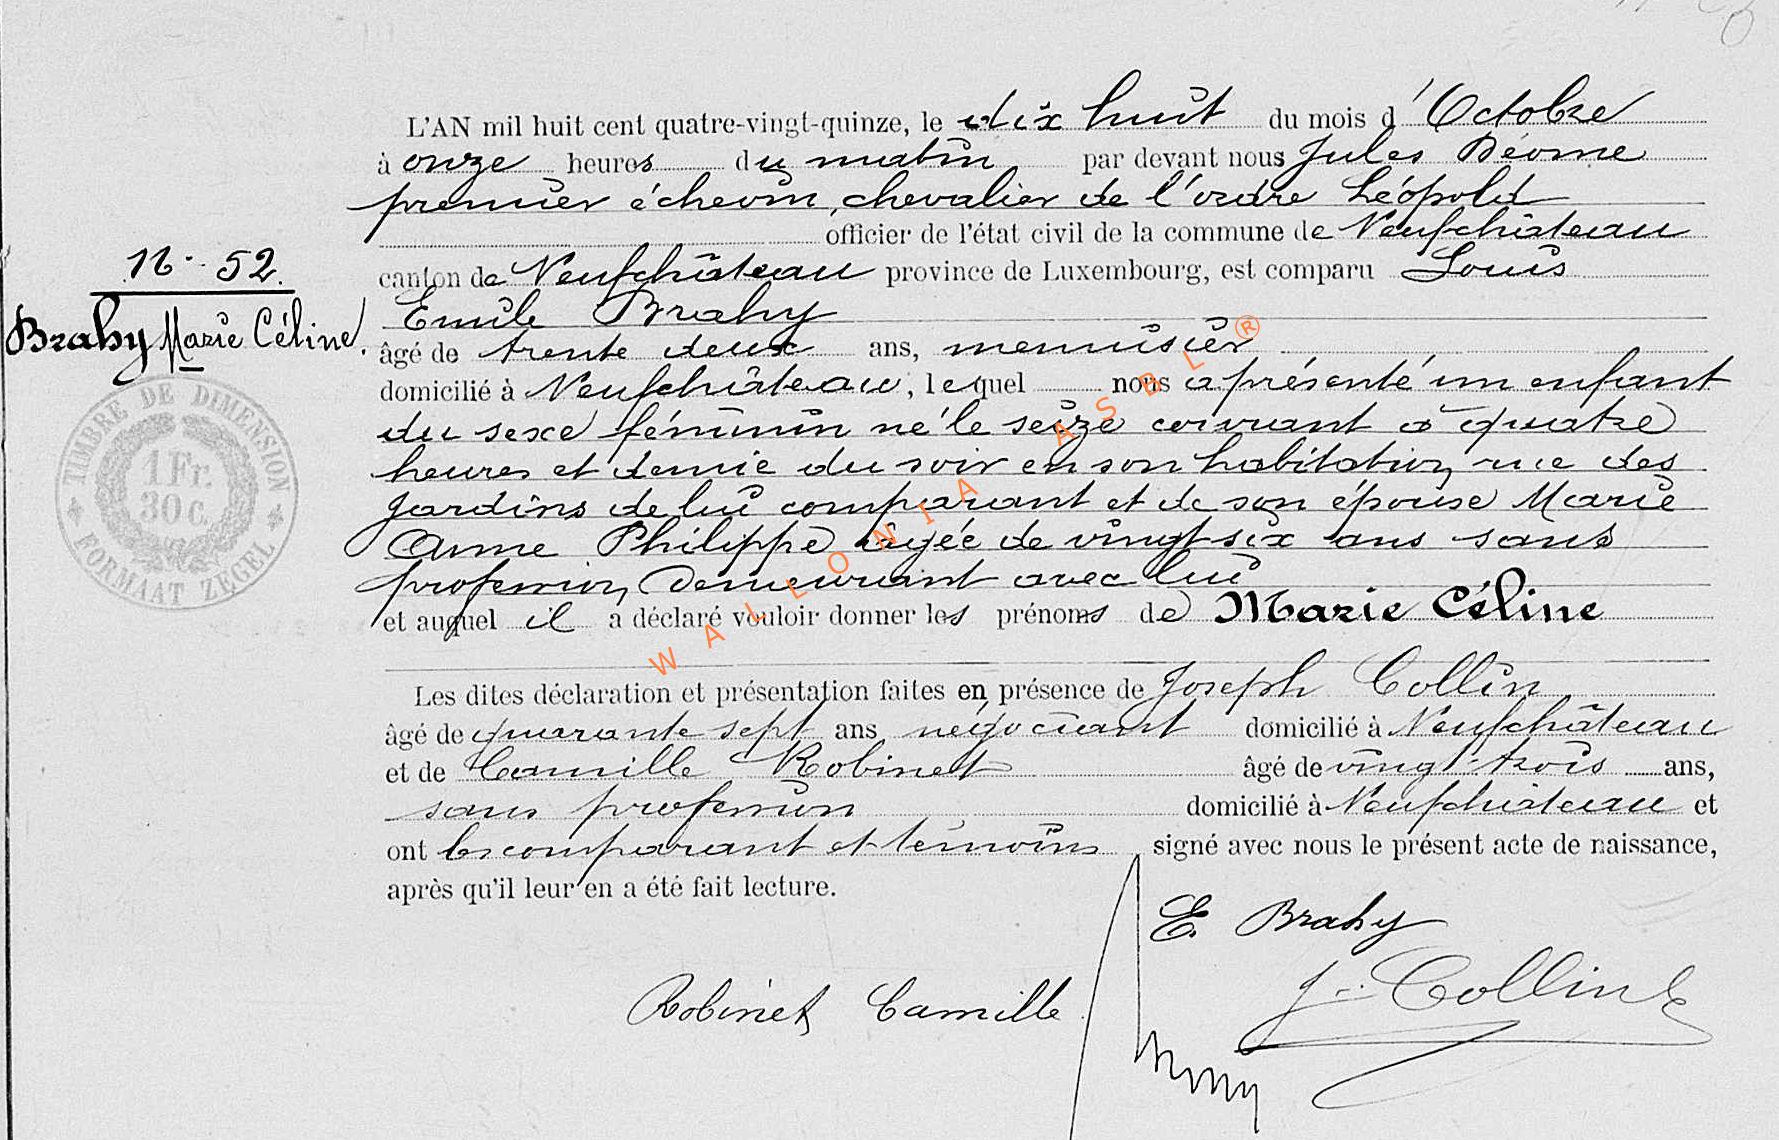 L'AN mil huit cent quatre-vingt-quinze, le dix huit du mois d'Octobre
à onze heures du matin par devant nous Jules Déome
premier échevin, chevalier de l'ordre Léopold
officier de l'état civil de la commune de Neufchâteau
canton de Neufchâteau province de Luxembourg, est comparu Louis
Emile Brahy
âgé de trente deux ans, menuisier
domicilié à Neufchâteau, lequel nous a présenté un enfant
du sexe féminin né le seize courant à quatre
heures et demie du soir en son habitation rue des
Jardins de lui comparant et de son épouse Marie
Anne Philippe âgée de vingt-six ans sans
profession, demeurant avec lui
et auquel il a déclaré vouloir donner les prénoms de Marie Céline
Les dites déclaration et présentation faites en présence de Joseph Collin
âgé de quarante sept ans négociant domicilié à Neufchâteau
et de Camille Robinet âgé de vingt-trois ans,
sans profession domicilié à Neufchâteau et
ont les comparant et témoins signé avec nous le présent acte de naissance,
après qu'il leur en a été fait lecture.
N. 52.
Brahy Marie Céline.
TIMBRE DE DIMENSION
1 Fr.
30 c.
FORMAAT ZEGEL
E. Brahy
J. Collin
Robinet Camille
WALLONIA ASBL ®